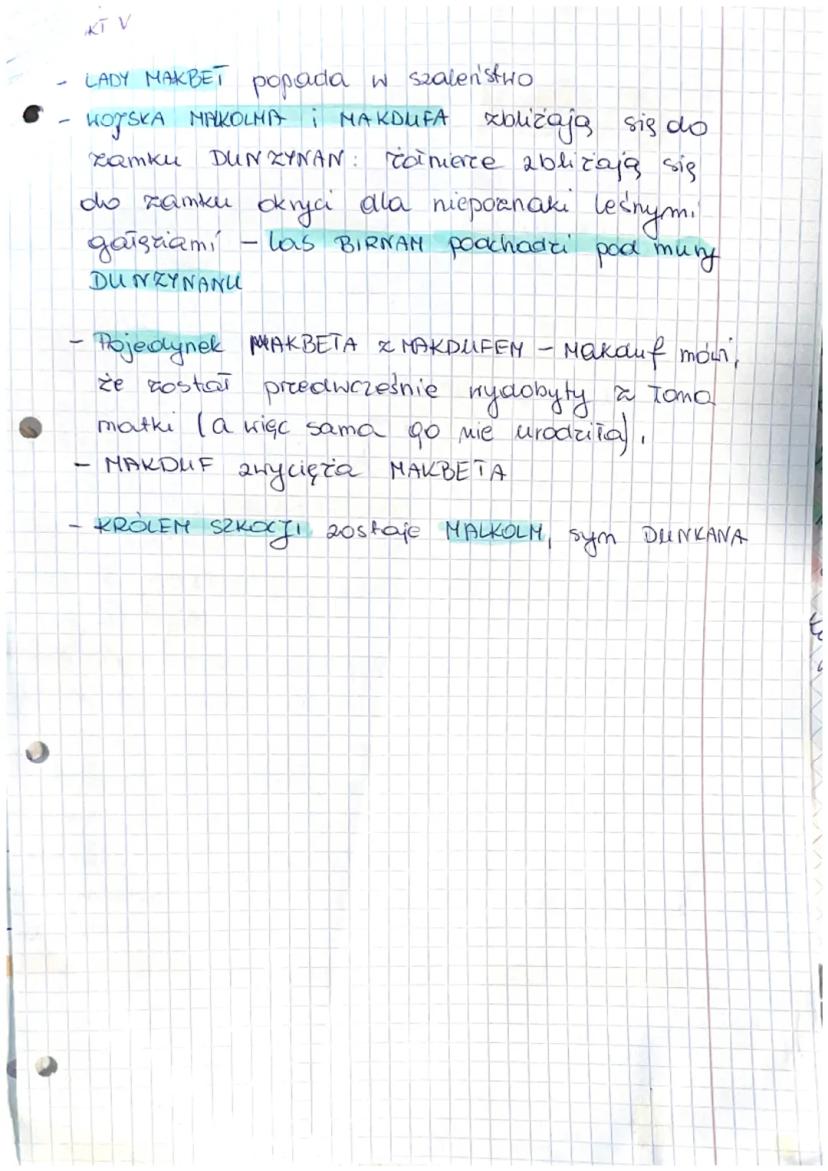 KT V
- LADY MAKBET popada w szaleństwo
- WOJSKA MALKOLMA i MAKDUFA zbliżają się do
zamku DUNZYNAN: żołnierze zbliżają się
do zamku okryci dla niepoznaki leśnymi
gałęziami - las BIRNAM podchodzi pod mury
DUNZYNANU
- Pojedynek MAKBETA z MAKDUFEM - Makduf mówi,
że został przedwcześnie wydobyty z łona
matki (a więc sama go nie urodziła).
- MAKDUF zwycięża MAKBETA
- KRÓLEM SZKOCJI zostaje MALKOLM, syn DUNKANA